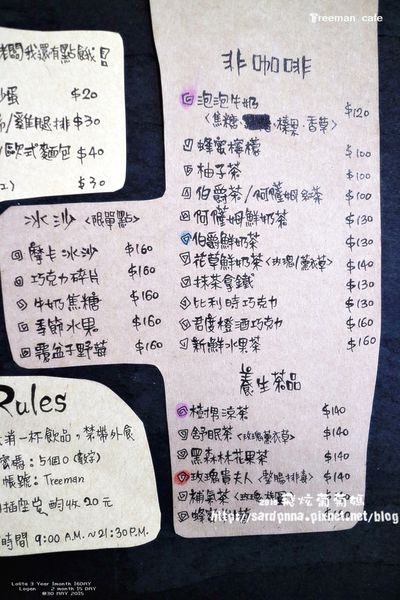 Treeman cafe
老闆我還有點餓！
沙蛋 $20
/雞腿排 $30
/歐式麵包 $40
$30
冰沙〈限單點〉
摩卡冰沙 $160
巧克力碎片 $160
牛奶焦糖 $160
季節水果 $160
覆盆子野莓 $160
Rules
消一杯飲品，禁帶外食
密碼：5個0（數字）
帳號：Treeman
插座 酌收20元
時間 9:00 A.M.~21:30 P.M.
非咖啡
泡泡牛奶 $120
〈焦糖、榛果、香草〉
蜂蜜檸檬 $100
柚子茶 $100
伯爵茶/阿薩姆紅茶 $100
阿薩姆鮮奶茶 $130
伯爵鮮奶茶 $130
花草鮮奶茶〈玫瑰/薰衣草〉 $140
抹茶拿鐵 $130
比利時巧克力 $130
君度橙酒巧克力 $160
新鮮水果茶 $160
養生茶品
涼茶 $140
舒眠茶〈玫瑰薰衣草〉 $140
黑森林花果茶 $140
玫瑰貴夫人〈 排毒〉 $140
補氣茶 $140
http://sardonna.pixnet.net/blog
Lolita 3 Year 1month 16DAY
Logan 2 month 15 DAY
@30 MAY 2015